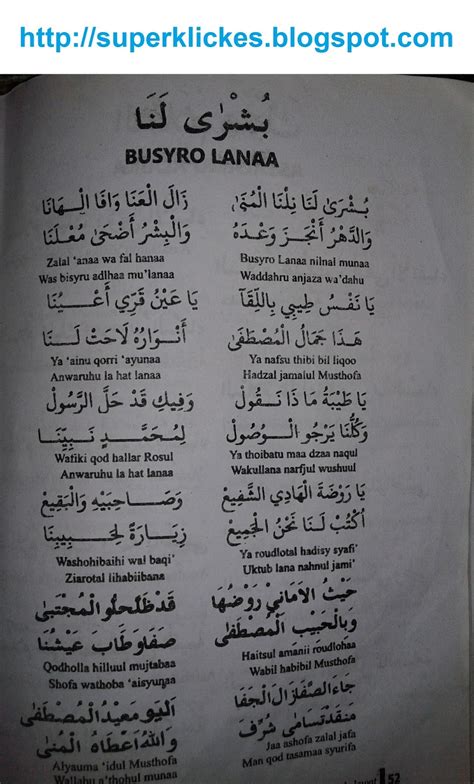 http://superklickes.blogspot.com
بُشْرٰى لَنَا
BUSYRO LANAA
بُشْرَى لَنَا نِلْنَا الْمُنَى
زَالَ الْعَنَا وَافَا الْهَانَا
وَالدَّهْرُ أَنْجَزَ وَعْدَهُ
وَالْبِشْرُ أَضْحَى مُعْلَنَا
Busyro Lanaa nilnal munaa
Zalal 'anaa wa fal hanaa
Waddahru anjaza wa'dahu
Was bisyru adlhaa mu'lanaa
يَا نَفْسُ طِيبِي بِاللِّقَآ
يَا عَيْنُ قَرِّي أَعْيُنَا
هَذَا جَمَالُ الْمُصْطَفَى
أَنْوَارُهُ لَاحَتْ لَنَا
Ya nafsu thibi bil liqoo
Ya 'ainu qorri 'ayunaa
Hadzal jamaiul Musthofa
Anwaruhu la hat lanaa
يَا طَيْبَةُ مَا ذَا نَقُولْ
وَفِيكِ قَدْ حَلَّ الرَّسُولْ
وَكُلُّنَا يَرْجُو الْوُصُولْ
لِمُحَمَّدٍ نَبِيِّنَا
Ya thoibatu maa dzaa naqul
Wafiki qod hallar Rosul
Wakullana narfjul wushuul
Anwaruhu la hat lanaa
يَا رَوْضَةَ الْهَادِي الشَّفِيعْ
وَصَاحِبَيْهِ وَالْبَقِيعْ
أُكْتُبْ لَنَا نَحْنُ الْجَمِيعْ
زِيَارَةً لِحَبِيبِنَا
Ya roudlotal hadisy syafi'
Washohibaihi wal baqi'
Uktub lana nahnul jami'
Ziarotal lihabiibana
حَيْثُ الْأَمَانِي رَوْضُهَا
قَدْ ظَلَّ حُلْوُ الْمُجْتَبَى
وَبِالْحَبِيبِ الْمُصْطَفَى
صَفَا وَطَابَ عَيْشُنَا
Haitsul amanii roudlohaa
Qodholla hilluul mujtabaa
Wabil habibil Musthofa
Shofa wathoba 'aisyunaa
جَاءَ الصَّفَا زَالَ الْجَفَا
اَلْيَوْمَ عِيْدُ الْمُصْطَفَى
مَنْ قَدْ تَسَامَى شُرِّفَ
وَاللهُ أَعْطَاهُ الْمُنَى
Jaa ashofa zalal jafa
Alyauma 'idul Musthofa
Man qod tasamaa syurifa
Wallahu a'thohul munaa
52